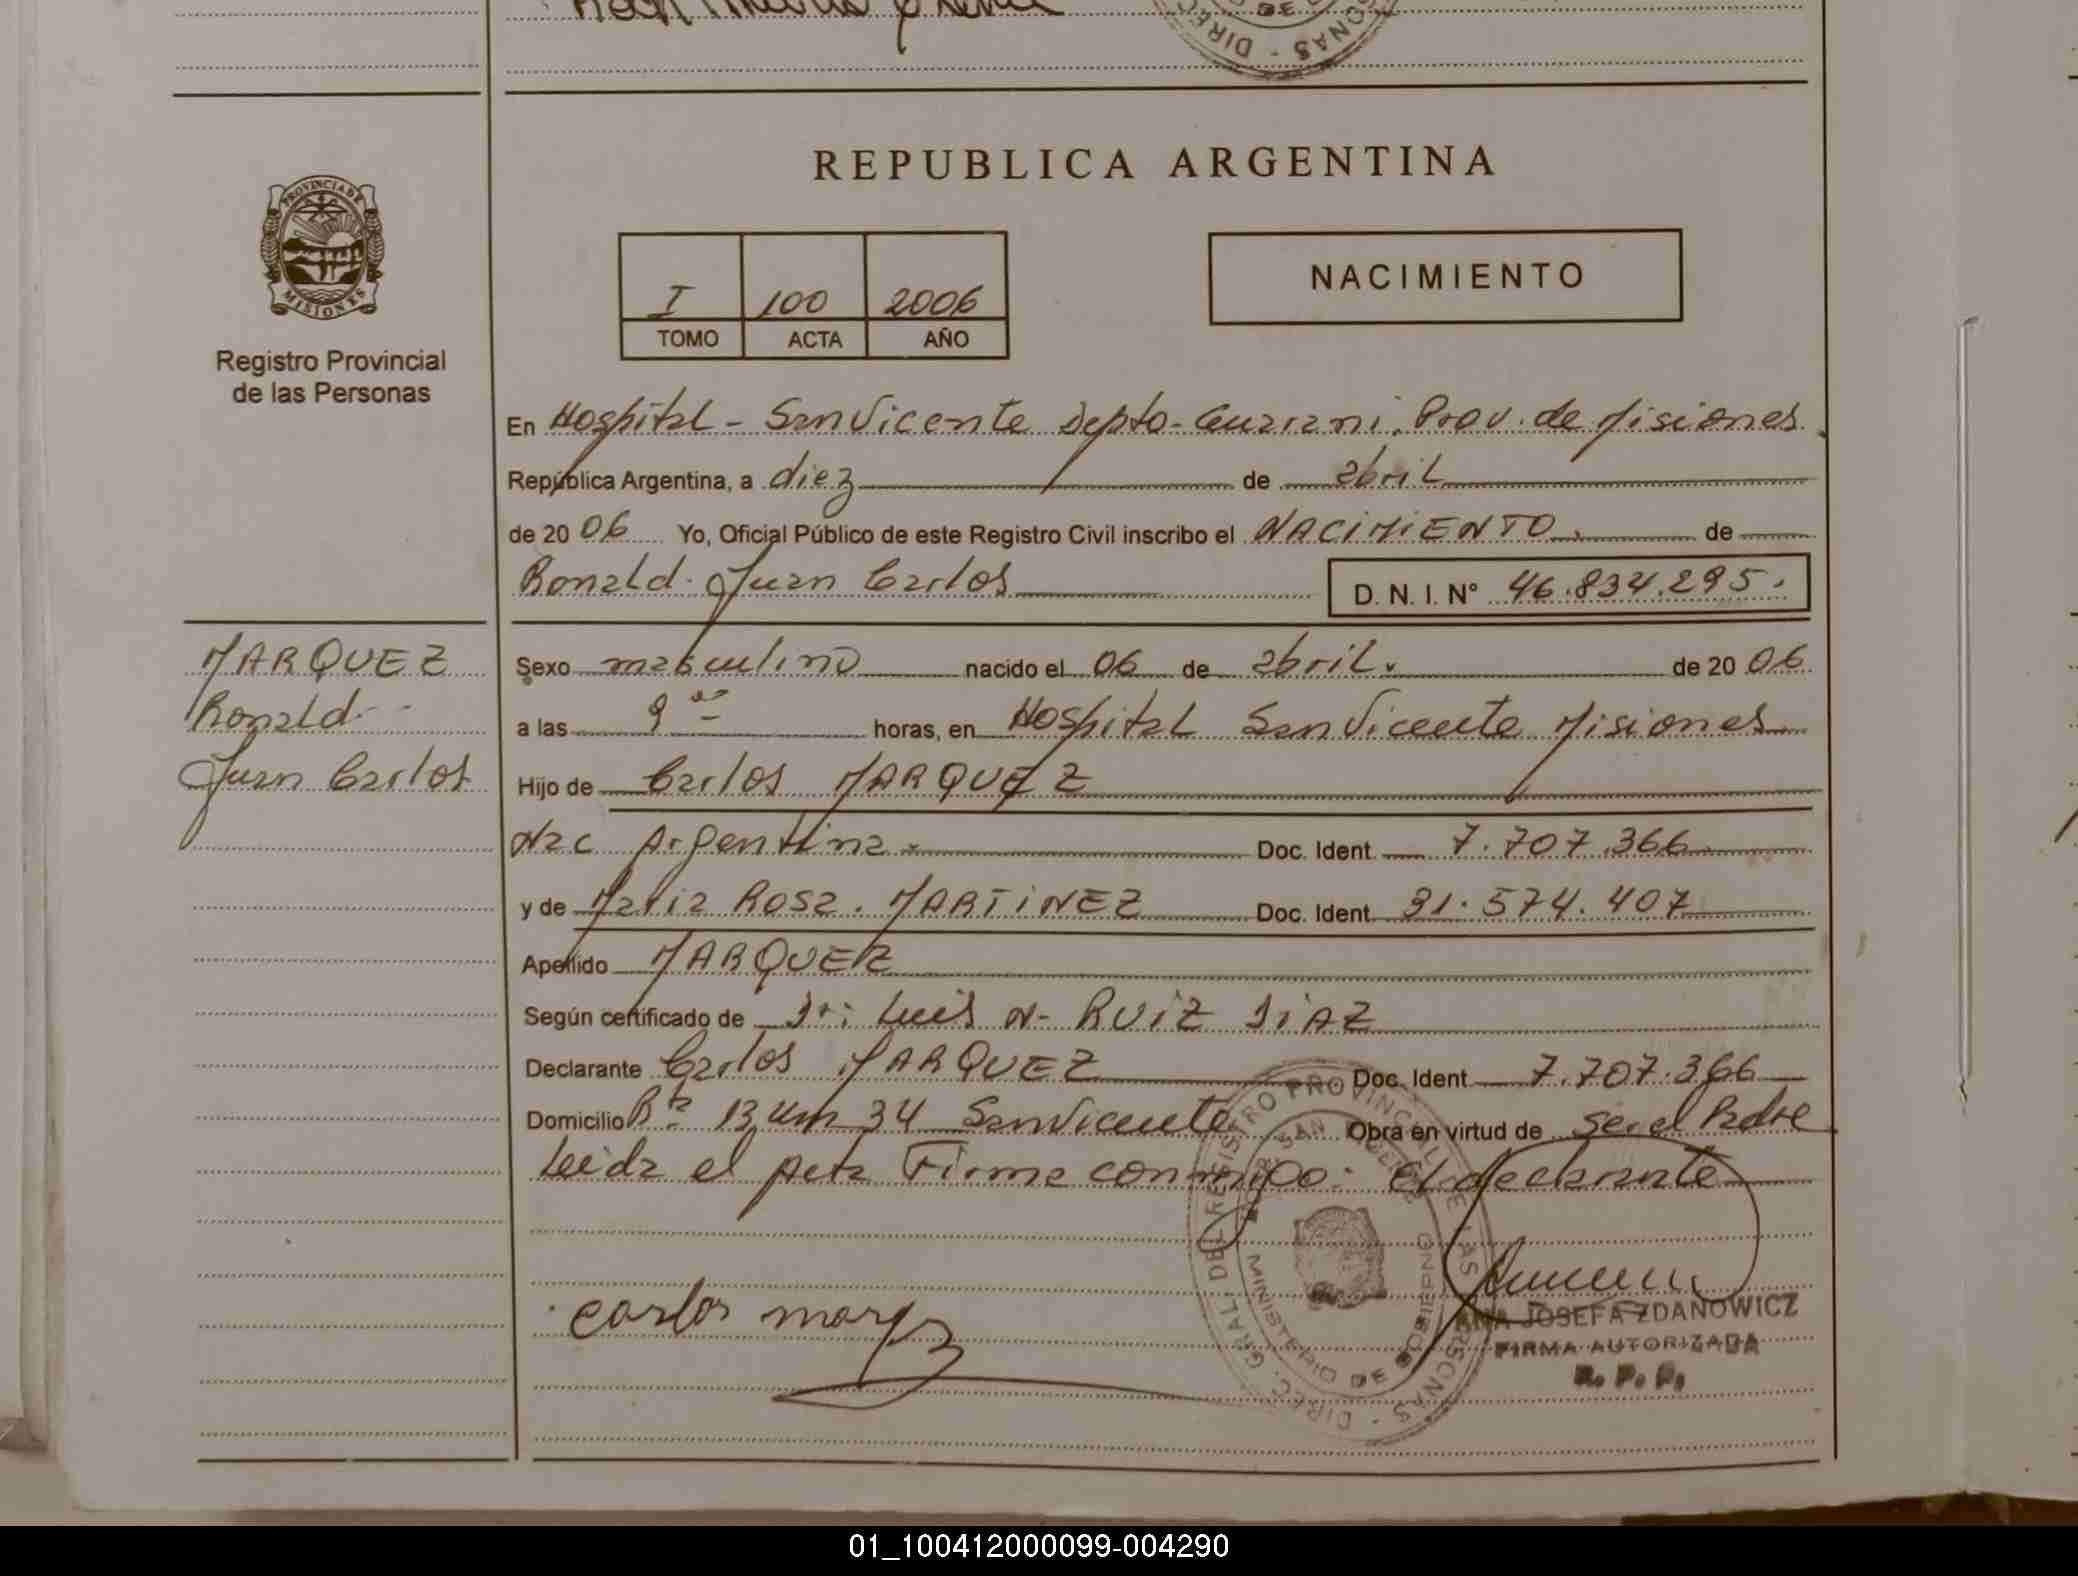 REPUBLICA ARGENTINA
PROVINCIA DE
MISIONES
Registro Provincial
de las Personas
I 100 2006
TOMO ACTA AÑO
NACIMIENTO
En Hospital - San Vicente Depto - Guarani. Prov. de Misiones
República Argentina, a diez de abril
de 20 06 Yo, Oficial Público de este Registro Civil inscribo el NACIMIENTO. de
Ronald Juan Carlos D. N. I. N° 46.834.295.
MARQUEZ
Ronald
Juan Carlos
Sexo masculino nacido el 06 de abril. de 20 06
a las 9 horas, en Hospital San Vicente Misiones
Hijo de Carlos MARQUEZ
Nac Argentina. Doc. Ident. 7.707.366
y de Maria Rosa. MARTINEZ Doc. Ident. 31.574.407
Apellido MARQUEZ
Según certificado de Dr: Luis N- RUIZ DIAZ
Declarante Carlos MARQUEZ Doc. Ident. 7.707.366
Domicilio Bº 13 Km 34 San Vicente Obra en virtud de ser el Padre
Leida el Acta Firma conmigo: El declarante
carlos marqz
DIREC. GRAL. DEL REGISTRO PROVINCIAL DE LAS PERSONAS
MINISTERIO DE GOBIERNO
ANA JOSEFA ZDANOWICZ
FIRMA AUTORIZADA
R. P. P.
01_100412000099-004290